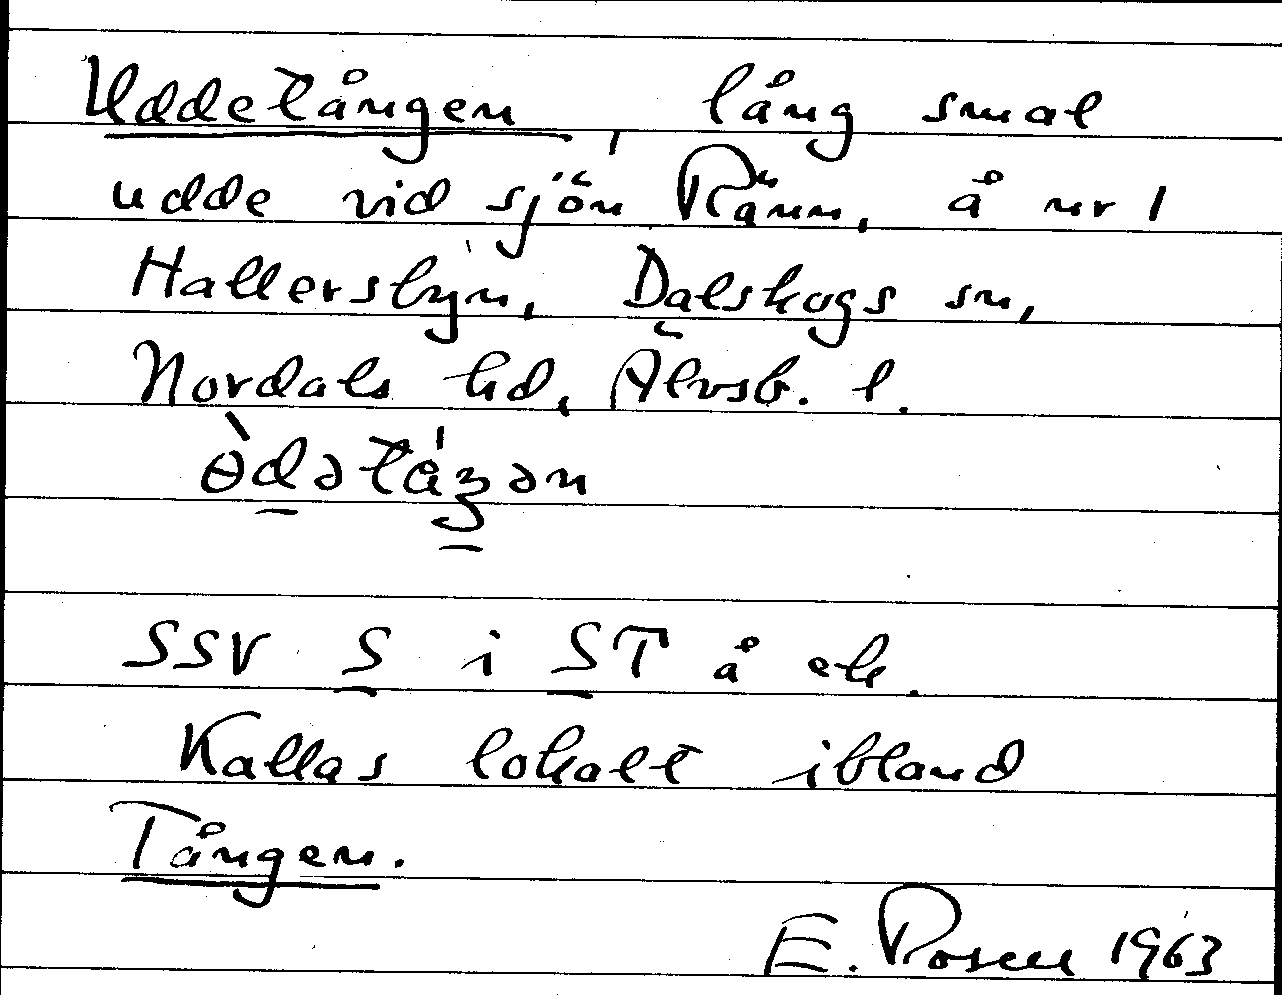 Uddetången, lång smal
udde vid sjön Ränn, å nr 1
Hallersbyn, Dalskogs sn,
Nordals hd, Älvsb. l.
SSV S i ST å ek.
Kallas lokalt ibland
Tången.
E. Rosen 1963